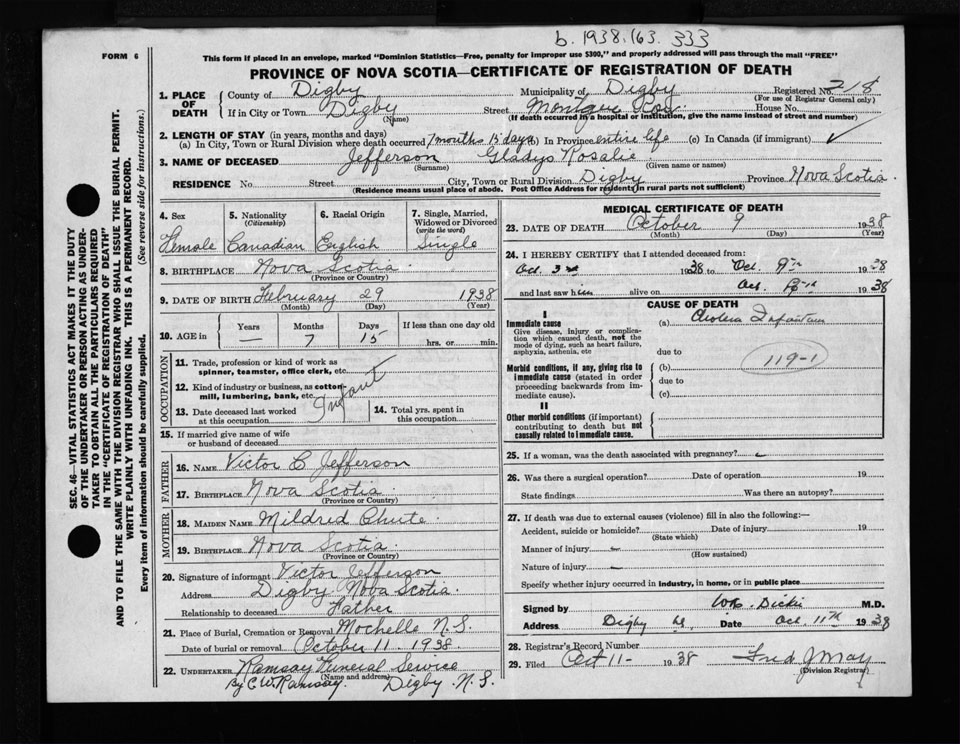 b. 1938.163.333
FORM 6
This form if placed in an envelope, marked "Dominion Statistics—Free, penalty for improper use $300," and properly addressed will pass through the mail "FREE"
PROVINCE OF NOVA SCOTIA—CERTIFICATE OF REGISTRATION OF DEATH
1. PLACE OF DEATH County of Digby Municipality of Digby Registered No. 218
(For use of Registrar General only)
If in City or Town Digby Street Montague Row House No.
(Name) (If death occurred in a hospital or institution, give the name instead of street and number)
2. LENGTH OF STAY (in years, months and days)
(a) In City, Town or Rural Division where death occurred 7 months 15 days (b) In Province entire life (c) In Canada (if immigrant)
3. NAME OF DECEASED Jefferson Gladys Rosalie
(Surname) (Given name or names)
RESIDENCE No. Street City, Town or Rural Division Digby Province Nova Scotia
(Residence means usual place of abode. Post Office Address for residents in rural parts not sufficient)
4. Sex 5. Nationality (Citizenship) 6. Racial Origin 7. Single, Married, Widowed or Divorced (write the word)
Female Canadian English Single
8. BIRTHPLACE Nova Scotia
(Province or Country)
9. DATE OF BIRTH February 29 1938
(Month) (Day) (Year)
10. AGE in Years Months Days If less than one day old
— 7 15 hrs. or min.
OCCUPATION
11. Trade, profession or kind of work as spinner, teamster, office clerk, etc.
12. Kind of industry or business, as cotton-mill, lumbering, bank, etc.
Infant
13. Date deceased last worked at this occupation 14. Total yrs. spent in this occupation
15. If married give name of wife or husband of deceased
FATHER
16. NAME Victor C Jefferson
17. BIRTHPLACE Nova Scotia
(Province or Country)
MOTHER
18. MAIDEN NAME Mildred Chute
19. BIRTHPLACE Nova Scotia
(Province or Country)
20. Signature of informant Victor Jefferson
Address Digby Nova Scotia
Relationship to deceased Father
21. Place of Burial, Cremation or Removal Mochelle N.S.
Date of burial or removal October 11 1938
22. UNDERTAKER Ramsay Funeral Service
(Name and address)
By C W Ramsay. Digby N.S.
MEDICAL CERTIFICATE OF DEATH
23. DATE OF DEATH October 9 1938
(Month) (Day) (Year)
24. I HEREBY CERTIFY that I attended deceased from:
Oct. 3rd 1938 to Oct. 9th 1938
and last saw h alive on Oct. 1938
CAUSE OF DEATH
I
Immediate cause (a) Cholera Infantum
Give disease, injury or complication which caused death, not the mode of dying, such as heart failure, asphyxia, asthenia, etc
due to
119-1
Morbid conditions, if any, giving rise to immediate cause (stated in order proceeding backwards from immediate cause). (b)
due to
(c)
II
Other morbid conditions (if important) contributing to death but not causally related to immediate cause.
25. If a woman, was the death associated with pregnancy?
26. Was there a surgical operation? Date of operation 19
State findings Was there an autopsy?
27. If death was due to external causes (violence) fill in also the following:—
Accident, suicide or homicide? Date of injury 19
(State which)
Manner of injury
(How sustained)
Nature of injury
Specify whether injury occurred in industry, in home, or in public place
Signed by Dickie M.D.
Address Digby Date Oct. 11th 1938
28. Registrar's Record Number
29. Filed Oct 11- 1938 Fred J May
(Division Registrar)
SEC. 46—VITAL STATISTICS ACT MAKES IT THE DUTY
OF THE UNDERTAKER OR PERSON ACTING AS UNDER-
TAKER TO OBTAIN ALL THE PARTICULARS REQUIRED
IN THE "CERTIFICATE OF REGISTRATION OF DEATH"
AND TO FILE THE SAME WITH THE DIVISION REGISTRAR WHO SHALL ISSUE THE BURIAL PERMIT.
WRITE PLAINLY WITH UNFADING INK. THIS IS A PERMANENT RECORD.
Every item of information should be carefully supplied. (See reverse side for instructions.)